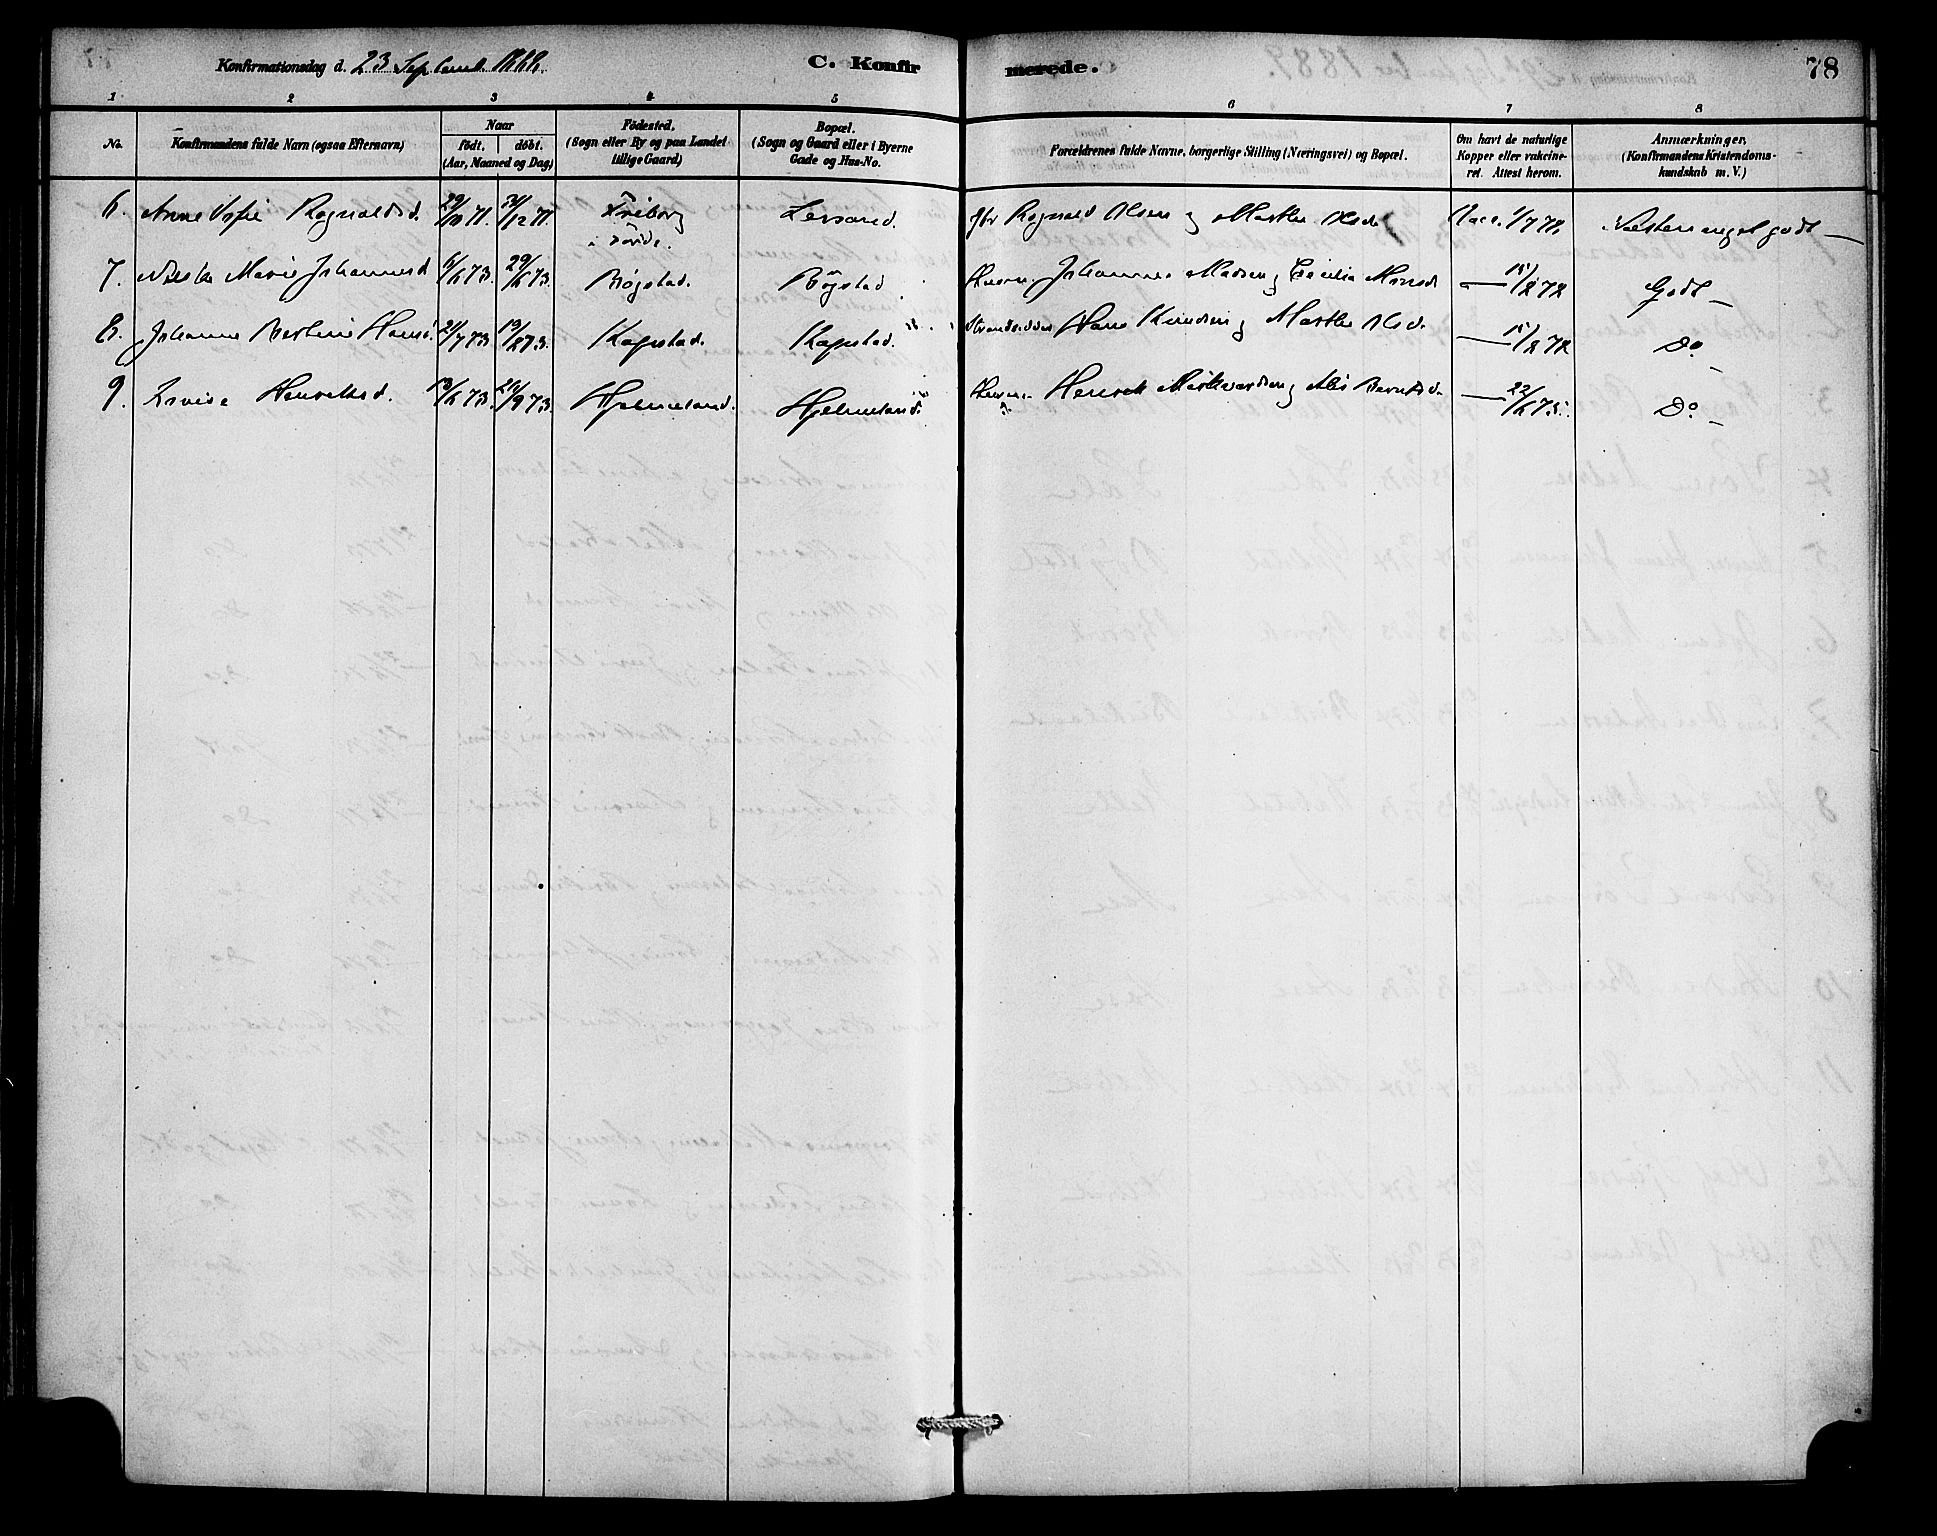 Konfirmationsdag d. 23 Septemb. 1888. C. Konfirmerede. 78
1 2 3 4 5 6 7 8
No. Konfirmandens fulde Navn (ogsaa Efternavn) Naar födt. döbt. (Aar, Maaned og Dag) Födested. (Sogn eller By og paa Landet tillige Gaard) Bopæl. (Sogn og Gaard eller i Byerne Gade og Hus-No. Forældrenes fulde Navne, borgerlige Stilling (Næringsvei) og Bopæl. Om havt de naturlige Kopper eller vakcineret. Attest herom. Anmærkninger, (Konfirmandens Kristendomskundskab m. V.)
6. Anne Sofie Ragnaldsd. 29/10 71. 31/12 71. Friborg Lersund. Ragnald Olsen og Marthe Olsd. Vacc. 1/7 72 Næsten meget godt —
7. Marie Johannesd 6/6 73. 29/6 73. Bøgstad. Bøgstad Johannes Madsen og Cecilia Monsd — 15/8 72 Godt —
8. Johanne Bertine Hansd. 21/7 73 Kapstad. Kapstad. Strandsidder Hans Knudsen og Marthe Olsd. — 15/8 72 Do —
9. Lovise Henriksd. 13/6 73. 21/9 73. Hjelmeland. Hjelmeland. Henrik og Berntsd. — 22/6 75. Do —